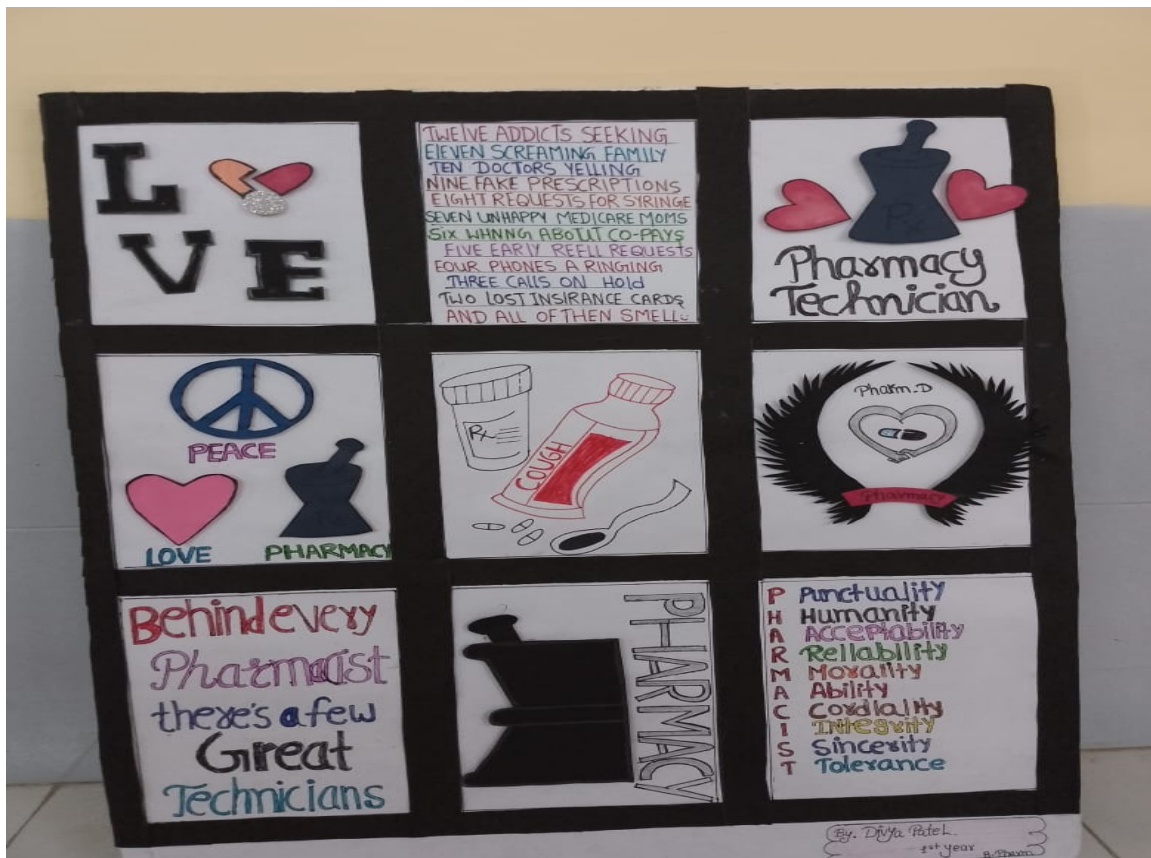 L
V E
TWELVE ADDICTS SEEKING
ELEVEN SCREAMING FAMILY
TEN DOCTORS YELLING
NINE FAKE PRESCRIPTIONS
EIGHT REQUESTS FOR SYRINGE
SEVEN UNHAPPY MEDICARE MOMS
SIX WHNNG ABOTIT CO-PAYS
FIVE EARLY REFLL REQUESTS
FOUR PHONES A RINGING
THREE CALLS ON HOLD
TWO LOST INSIRANCE CARDS
AND ALL OF THEN SMELL
Rx
Pharmacy
Technician
PEACE
LOVE PHARMACY
Rx
COUGH
Pharm.D
Pharmacy
Behind every
Pharmacist
there's a few
Great
Technicians
PHARMACY
P Punctuality
H Humanity
A Acceptability
R Reliability
M Morality
A Ability
C Cordiality
I Integrity
S Sincerity
T Tolerance
By. Divya Patel
1st year
B.Pharm